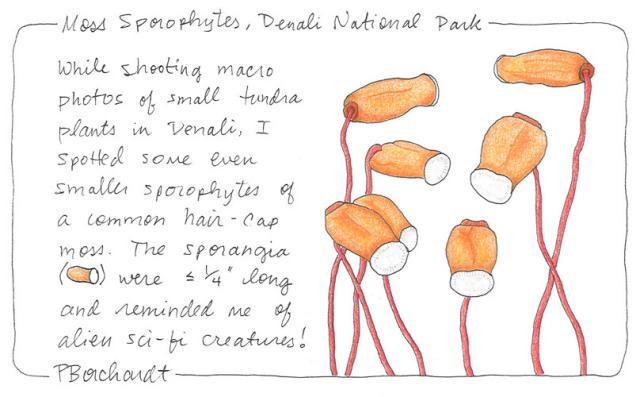 Moss Sporophytes, Denali National Park
While shooting macro
photos of small tundra
plants in Denali, I
spotted some even
smaller sporophytes of
a common hair-cap
moss. The sporangia
( ) were ≤ 1/4" long
and reminded me of
alien sci-fi creatures!
PBorchardt